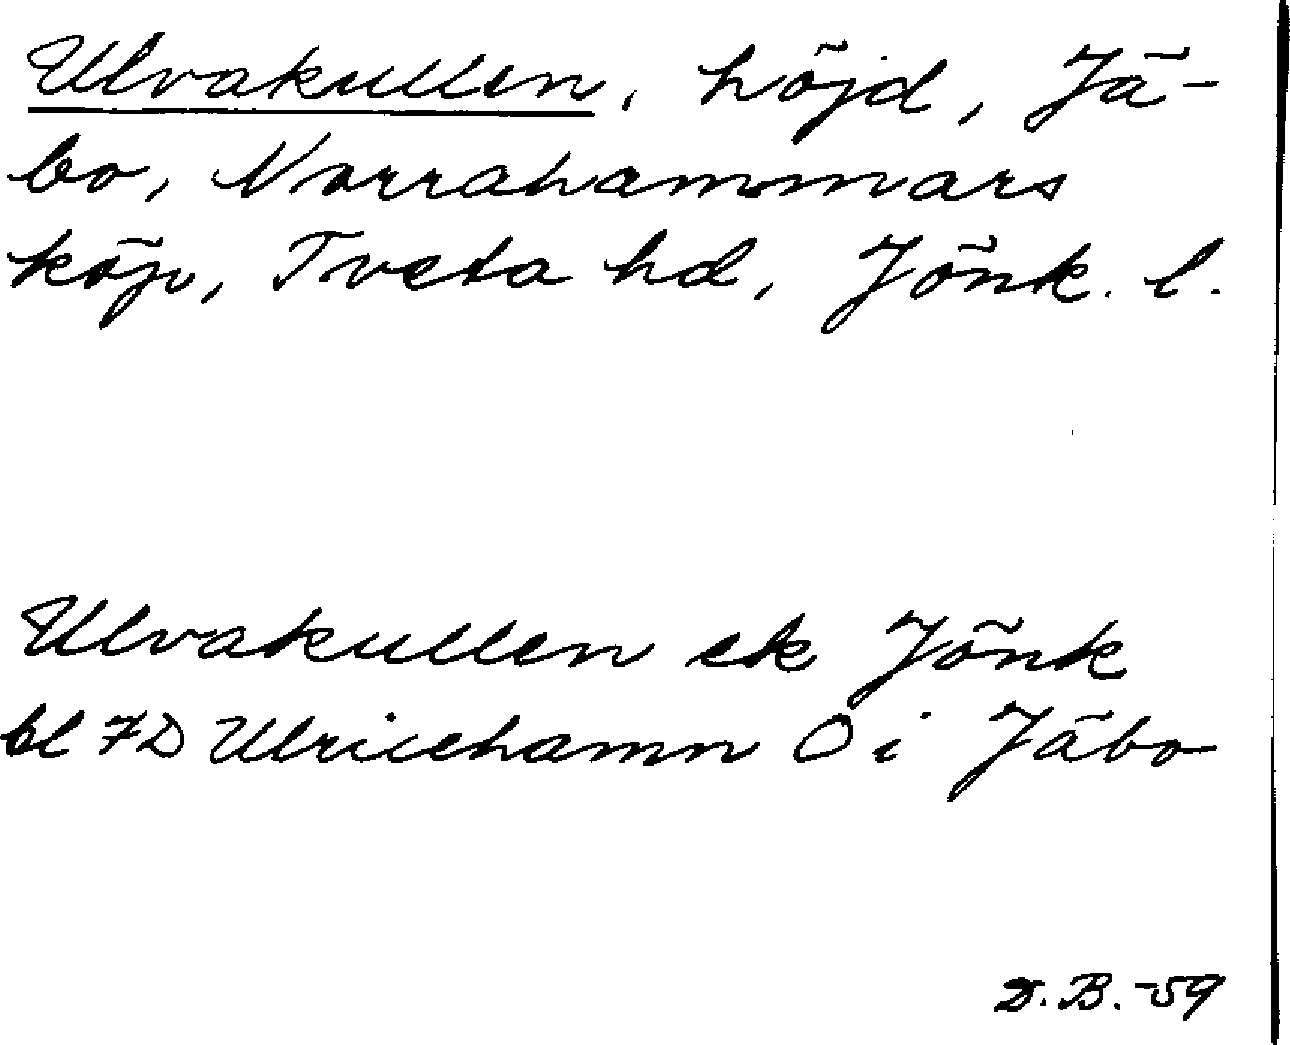 Ulvakullen, höjd, Jä-
bo, Norrahammars
köp, Tveta hd, Jönk. l.
Ulvakullen ek Jönk
bl 7D Ulricehamn O i Jäbo
D.B.-59